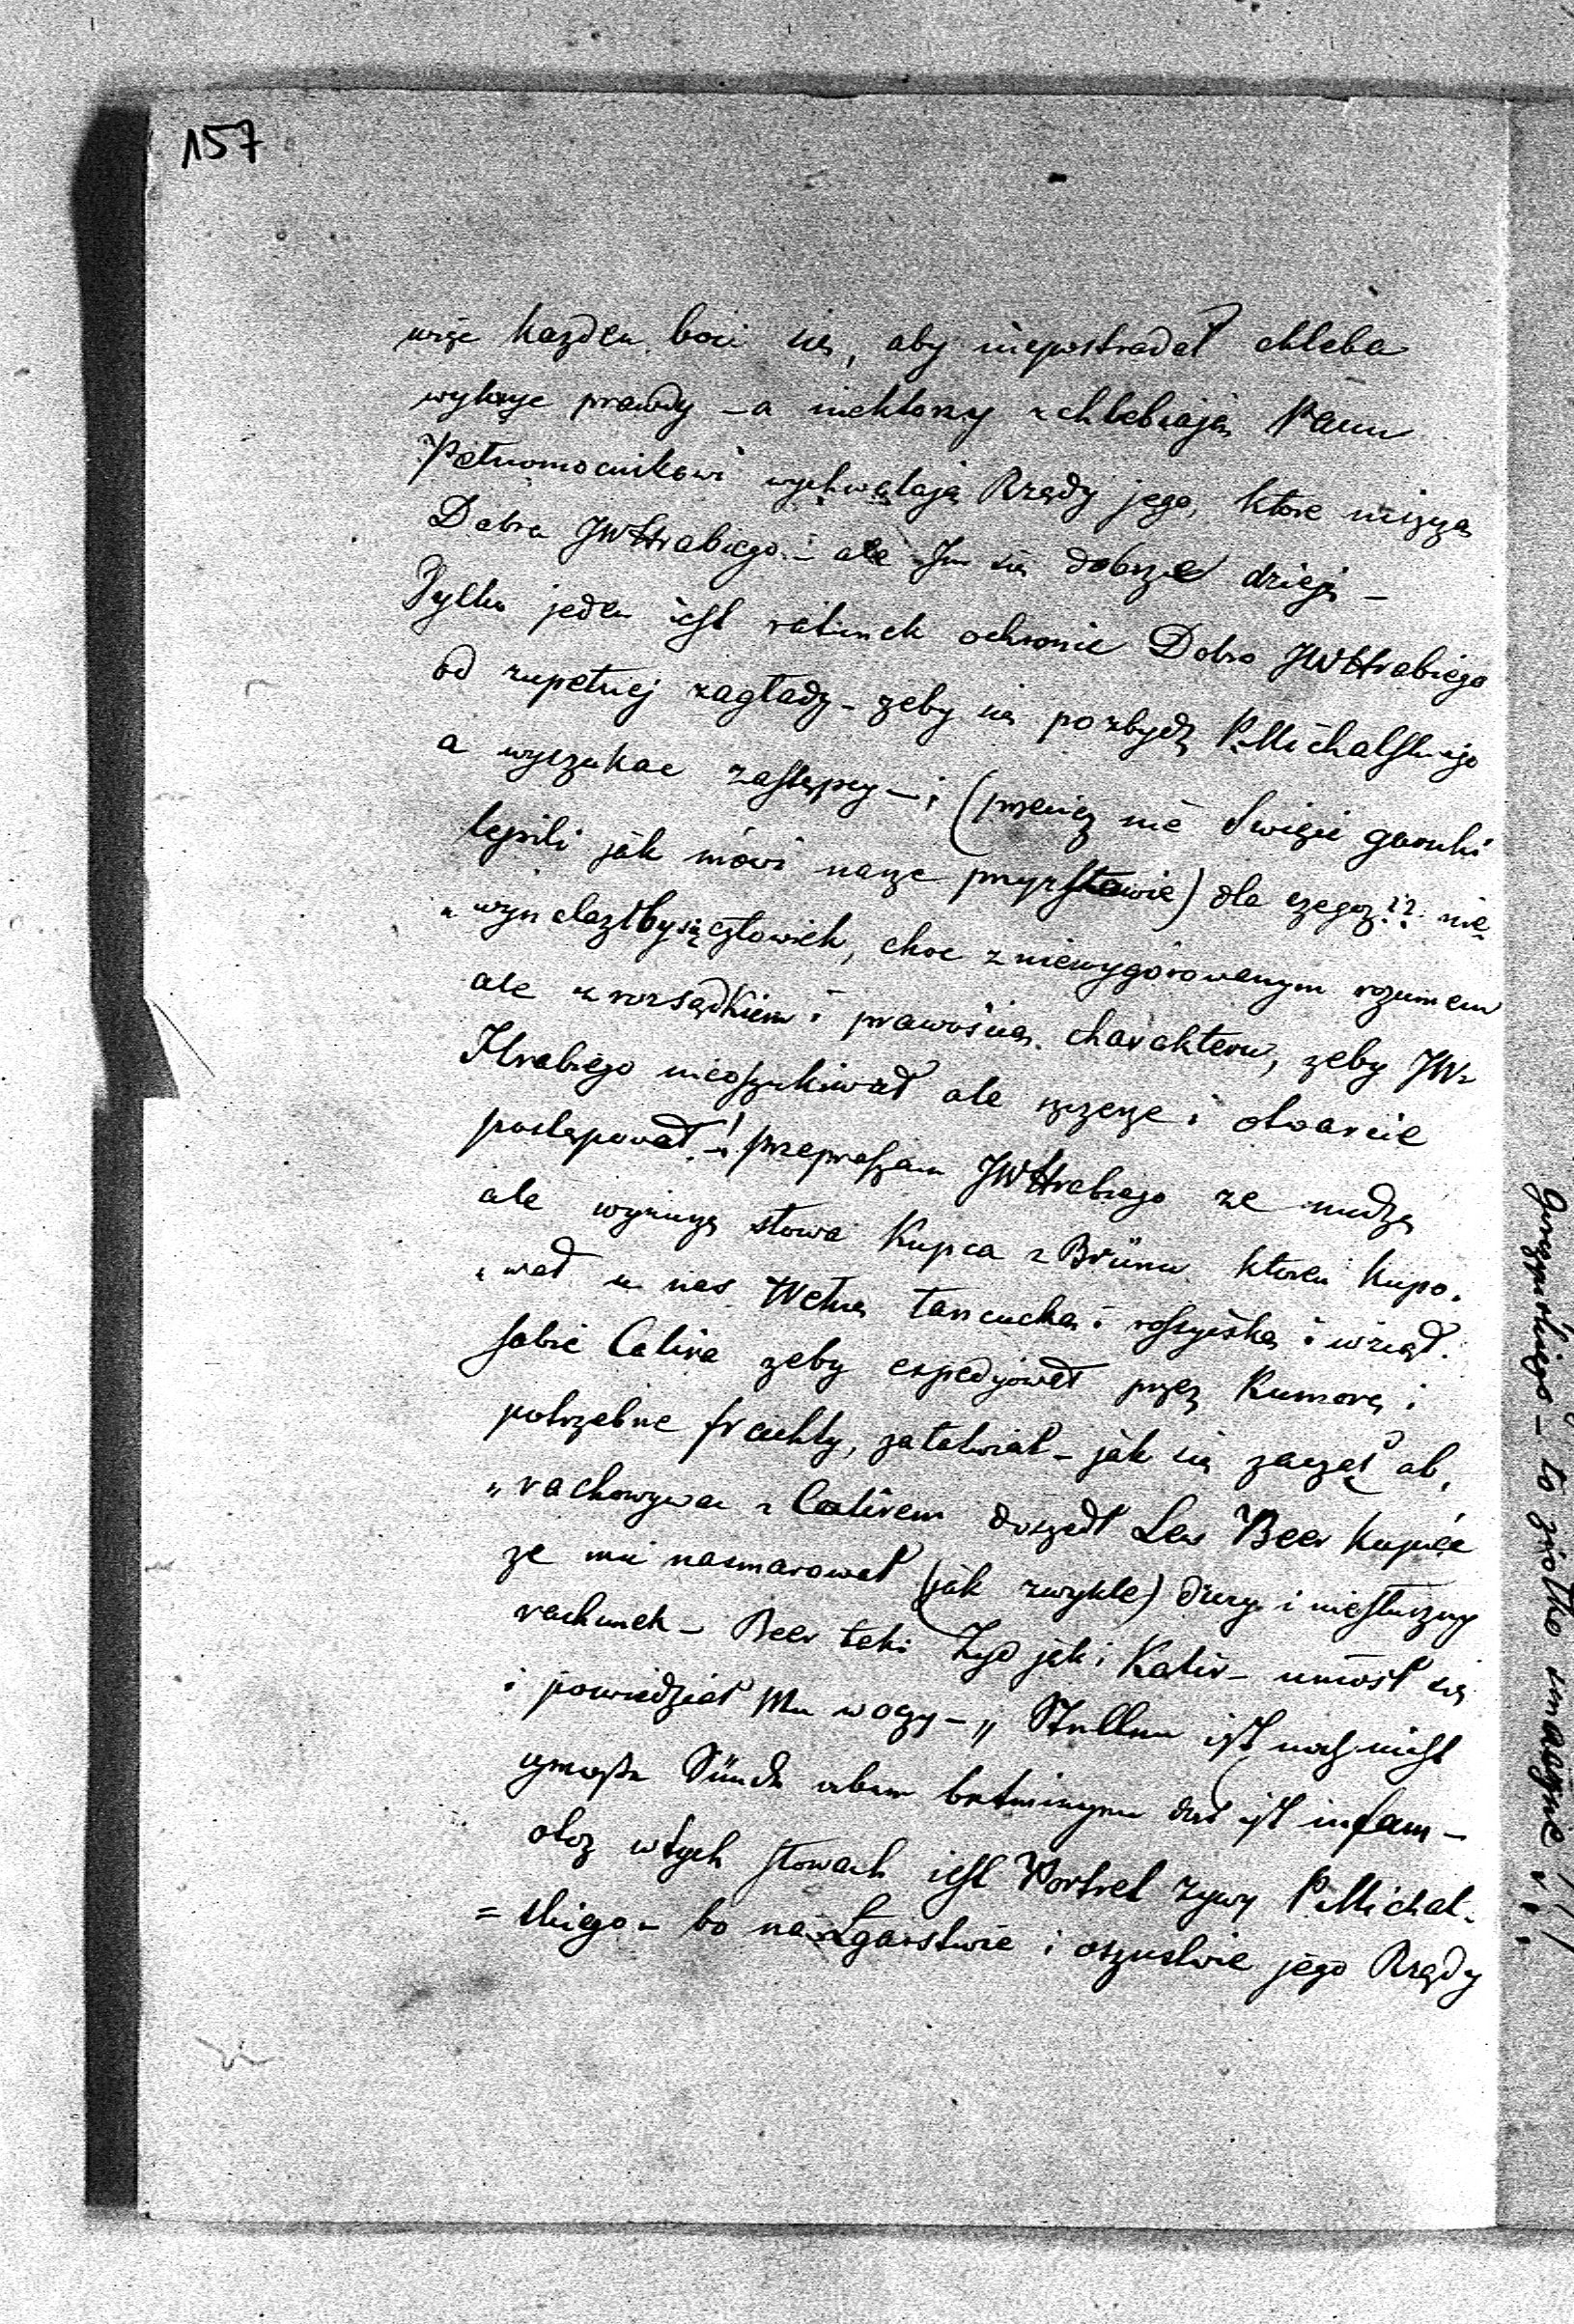 157
więc kazden boii się, aby niepostradał chleba
wykryc prawdy – a niektorzy schlebiają Panu
Pełnomocnikowi wychwalają Rządy jego, ktore niszczą
Dobra JWHrabiego – ale Im się dobrze dzieje –
Tylko jeden jest ratunek ochronic Dobra JWHrabiego
od zupełnej zagłady – zeby się pozbydz P. Michalskiego
a wyszukac zastępcy – i (przeciez nie Swięci garnki
lepili jak mówi nasze przysłowie) dla czegoz?? nie
„wynalazłby się człowiek, choc z niewygórowanym rozumem
ale z rozsądkiem i prawością charakteru, zeby JW
Hrabiego nieoszukiwał ale szczerze i otwarcie
postępował! – przepraszam JWHrabiego ze nudzę
ale wyrazę słowa Kupca z Brünu ktoren kupo„
„wał u nas Wełnę łancucką i rossyiską i wziął
sobie Calira zeby expedyiował przez Kumorę i
potrzebne frachty, załatwiał – jak się zaczął ob„
„rachowywac z Calirem doszedł Leo Beer kupiec
ze mu nasmarował (jak zwykle) duzy i niesłuszny
rachunek – Beer taki Zyd jak i Kalir – uniosł się
i powiedział Mu w oczy – „ Stellen ist noch nicht
grosste Sünde aber betriegen das ist infam –
otoz w tych słowach jest Portret zywy P. Michal„
= skiego – bo na Łgarstwie i oszustwie jego Rządy
– to ziołko smaczne !!!